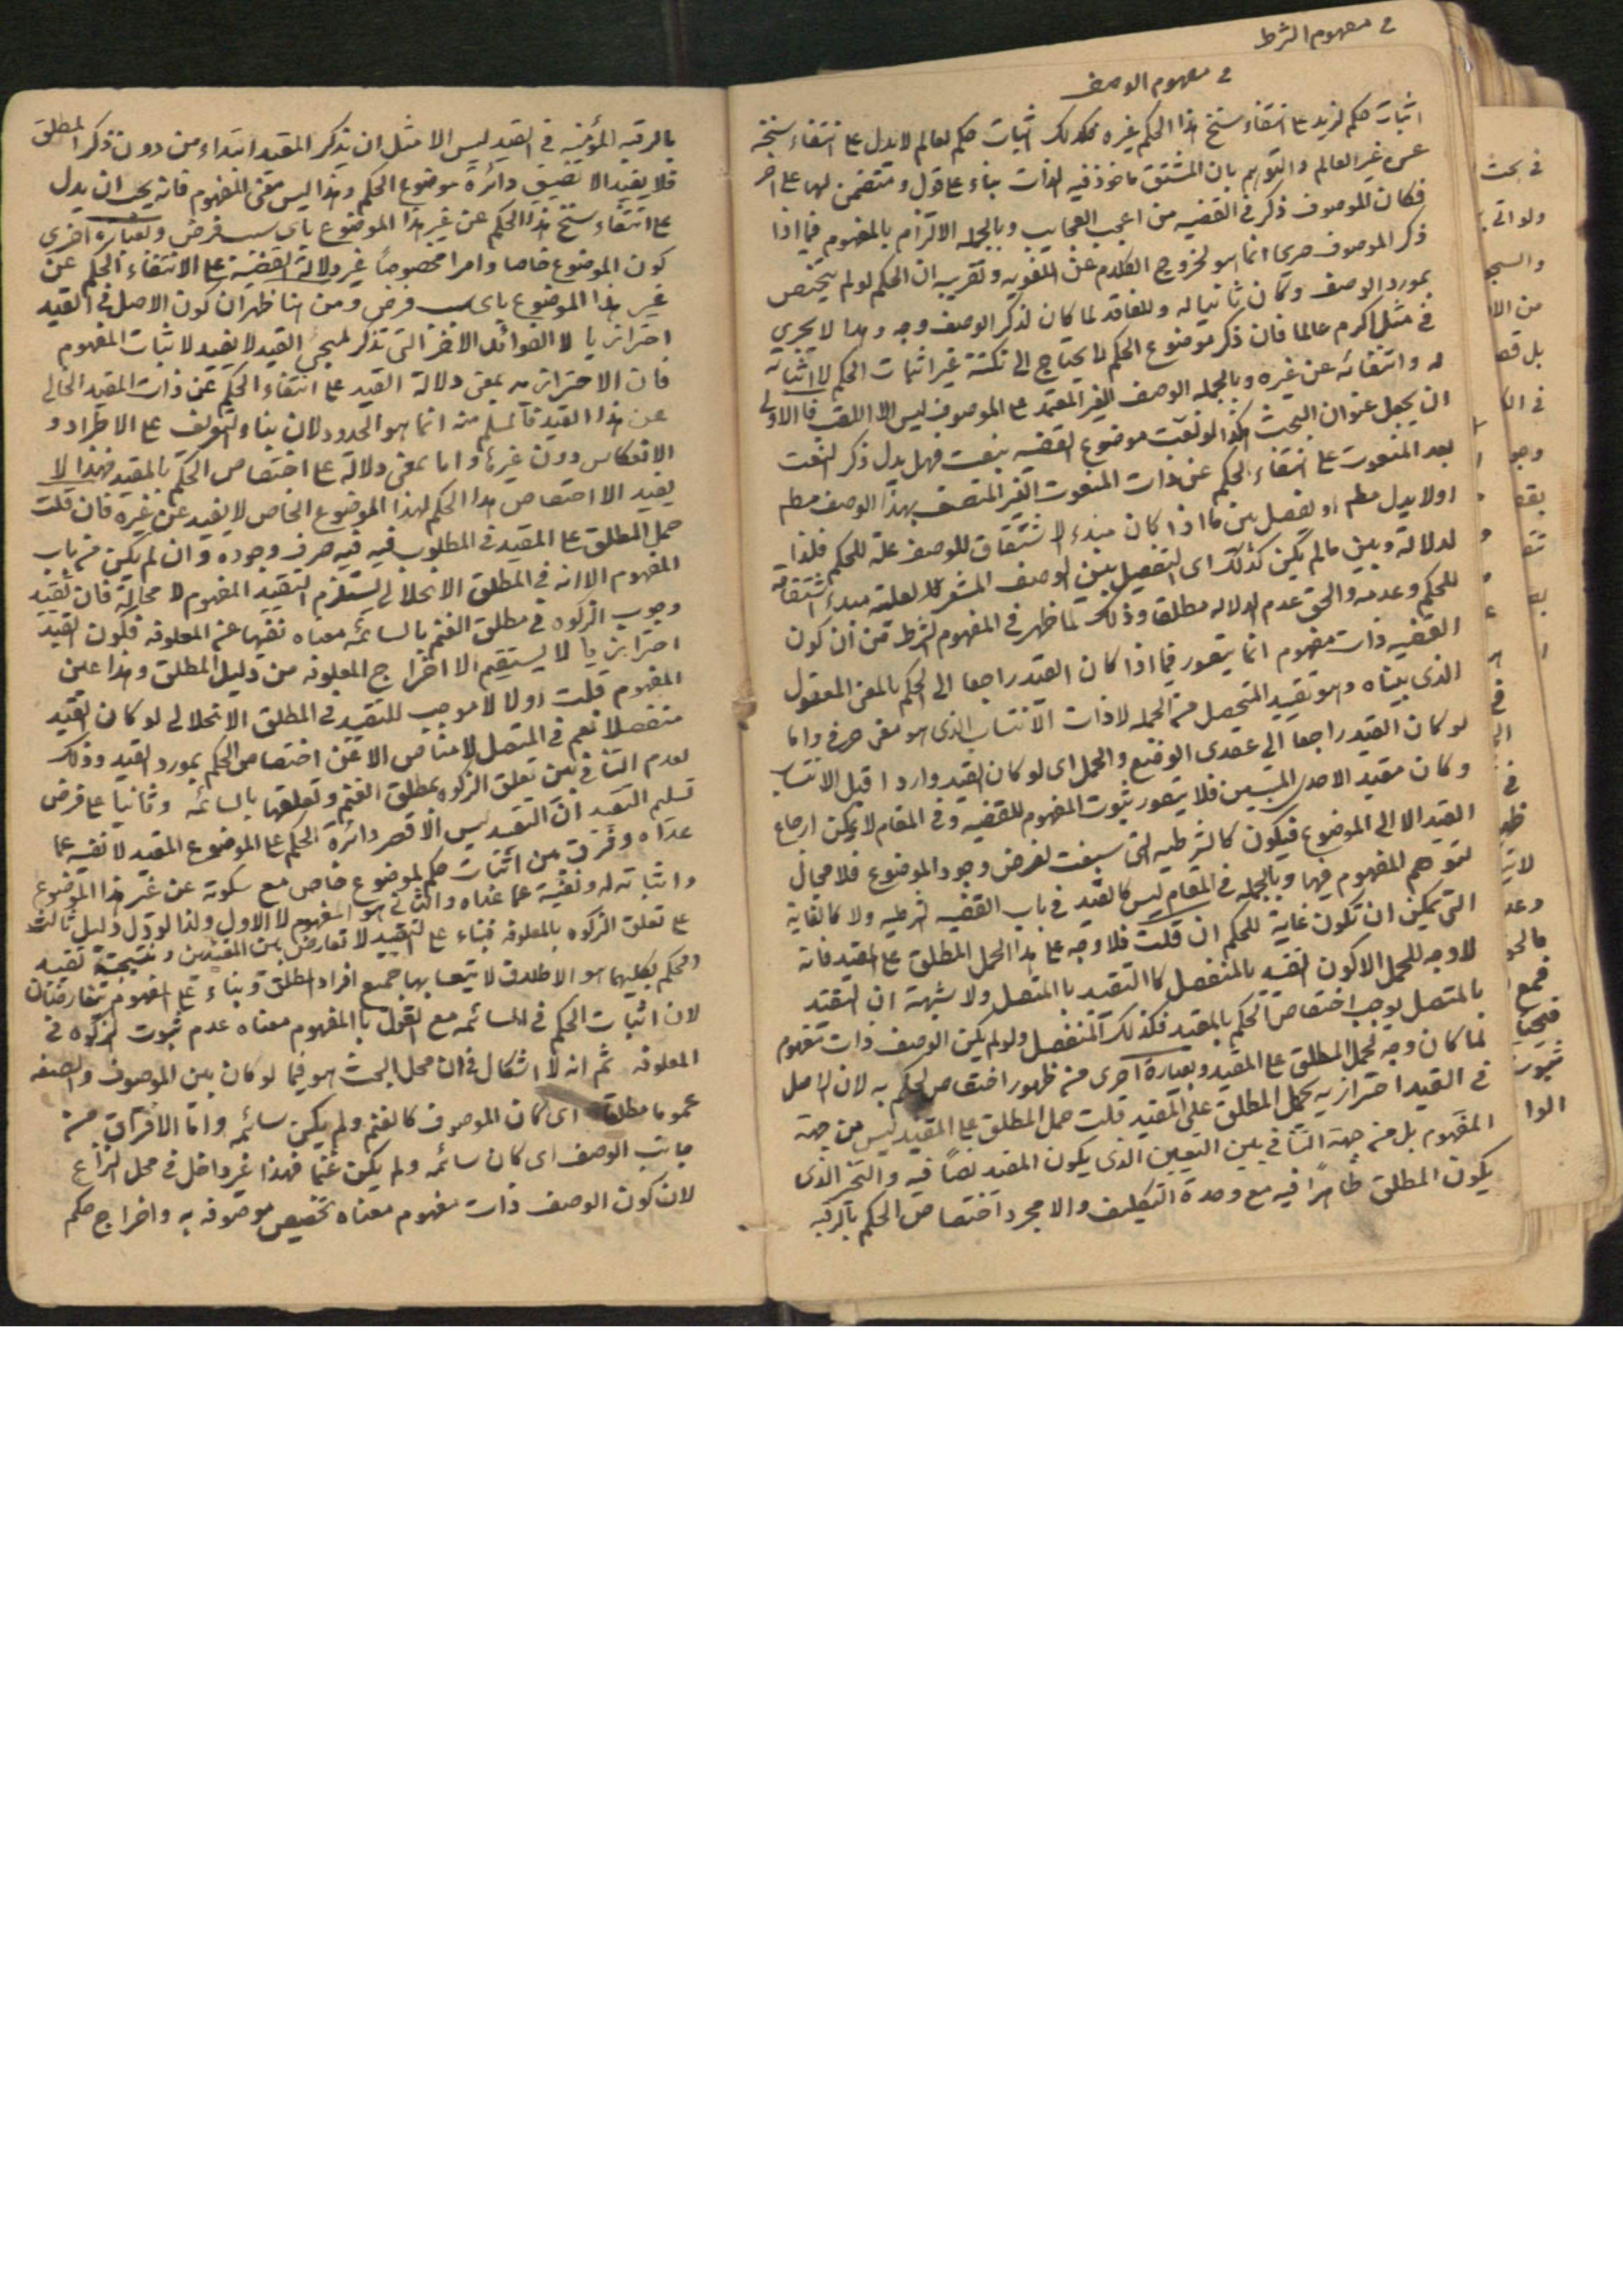 في مفهوم الشرط
في مفهوم الوصف
اثبات حكم لزيد على انتفاء سنخ هذا الحكم لغيره فكذلك اثبات حكم لعالم لا يدل على انتفاء سنخه
عن غير العالم والتوهم بان المشتق ماخوذ فيه الذات بناء على قول ومتضمن لها على اخر
فكان الموصوف ذكر في القضيه من اعجب العجايب وبالجمله الالتزام بالمفهوم فيما اذا
ذكر الموصوف صريحا انما هو لخروج الكلام عن اللغويه وتقريبه ان الحكم لو لم يختص
بمورد الوصف وكان ثابتا له وللفاقد لما كان لذكر الوصف وجه وهذا لا يجري
في مثل اكرم عالما فان ذكر موضوع الحكم لا يحتاج الى نكتة غير اثبات الحكم لا اثباته
له وانتفائه عن غيره وبالجمله الوصف الغير المعتمد على الموصوف ليس الا اللقب فالاولى
ان يجعل عنوان البحث هكذا لو نعت موضوع القضيه بنعت فهل يدل ذكر النعت
بعد المنعوت على انتفاء الحكم عن ذات المنعوت الغير المتصف بهذا الوصف مطم
او لا يدل مطم او نفصل بين ما اذا كان مبدء الاشتقاق للوصف علة للحكم فلذا
لدلالة وبين ما لم يكن كذلك اى التفصيل بين الوصف المشعر كلا لعلته مبدء اشتقاقه
للحكم وعدمه والحق عدم الدلاله مطلقا وذلك لما ظهر في المفهوم الشرط من ان كون
القضيه ذات مفهوم انما يتصور فيما اذا كان القيد راجعا الى الحكم بالمعنى المعقول
الذى بيناه وهو تقييد المتحصل من الجمله لا ذات الانتساب الذى هو معنى حرفى واما
لو كان القيد راجعا الى عقدى الوضع والحمل اى لو كان القيد واردا قبل الانتساب
وكان مقيد الاحد المنتسبين فلا يتصور ثبوت المفهوم للقضيه وفي المقام لا يمكن ارجاع
القيد الا الى الموضوع فيكون كالشرطيه التى سيقت لفرض وجود الموضوع فلا مجال
لتوهم المفهوم فيها وبالجمله في المقام ليس كالقيد في باب القضيه الشرطيه ولا كالغاية
التى يمكن ان تكون غاية للحكم ان قلت فلا وجه على هذا لحمل المطلق على المقيد فانه
لا وجه للحمل الا كون التقييد بالمنفصل كالتقييد بالمتصل ولا شبهة ان التقييد
بالمتصل يوجب اختصاص الحكم بالمقيد فكذلك المنفصل ولو لم يكن الوصف ذات مفهوم
لما كان وجه لحمل المطلق على المقيد وبعبارة اخرى من ظهور اختصاص الحكم به لان الاصل
في القيد احترازيه يحمل المطلق على المقيد قلت حمل المطلق على المقيد ليس من جهة
المفهوم بل من جهة التنافي بين التعيين الذى يكون المقيد نصا فيه والتخير الذى
يكون المطلق ظاهرا فيه مع وحدة التكليف والا مجرد اختصاص الحكم بالرقبه
بالرقبه المؤمنه في القيد ليس الا مثل ان يذكر المقيد ابتداء من دون ذكر المطلق
فلا يفيد الا تضييق دائرة موضوع الحكم وهذا ليس معنى المفهوم فانه يجب ان يدل
على انتفاء سنخ هذا الحكم عن غير هذا الموضوع باى سبب فرض وبعبارة اخرى
كون الموضوع خاصا وامرا مخصوصا غير دلالة القضية على الانتفاء الحكم عن
غير هذا الموضوع باى سبب فرض ومن هنا ظهر ان كون الاصل في القيد
احترازيا لا الفوائد الاخر التى تذكر لمجئ القيد لا يفيد لاثبات المفهوم
فان الاحترازيه بمعنى دلالة القيد على انتفاء الحكم عن ذات المقيد الخالى
عن هذا القيد فالمسلم منه انما هو الحدود لان بناء التعريف على الاطراد و
الانعكاس دون غيرها واما بمعنى دلالة على اختصاص الحكم بالمقيد فهذا لا
يفيد الا اختصاص هذا الحكم لهذا الموضوع الخاص لا يفيد عن غيره فان قلت
حمل المطلق على المقيد في المطلوب فيه صرف وجوده وان لم يكن من باب
المفهوم الا انه في المطلق الانحلالى يستلزم التقييد المفهوم لا محالة فان تقييد
وجوب الزكوه في مطلق الغنم بالسائمه معناه نفيها عن المعلوفه فكون القيد
احترازيا لا يستقيم الا اخراج المعلوفه من دليل المطلق وهذا عين
المفهوم قلت اولا لا موجب للتقييد في المطلق الانحلالى لو كان القيد
منفصلا نعم في المتصل لا مناص الا عن اختصاص الحكم بمورد القيد وذلك
لعدم التنافي بين تعلق الزكوه بمطلق الغنم وتعلقها بالسائمه وثانيا على فرض
تسليم التقييد ان التقييد ليس الا قصر دائرة الحكم على الموضوع المقيد لا نفيه عما
عداه وفرق بين اثبات حكم لموضوع خاص مع سكوته عن غير هذا الموضوع
واثباته له ونفيه عما عداه والثانى هو المفهوم لا الاول ولذا لو دل دليل ثالث
على تعلق الزكوه بالمعلوفه فبناء على التقييد لا تعارض بين المقيدين ونتيجة تقييد
الحكم بكليهما هو الاطلاق لا يتعبا بها جميع افراد المطلق وبناء على المفهوم يتعارضان
لان اثبات الحكم في السائمه مع القول بالمفهوم معناه عدم ثبوت الزكوه في
المعلوفه ثم انه لا اشكال في ان محل البحث هو فيما لو كان بين الموصوف والصفه
عموما مطلقا اى كان الموصوف كالغنم ولم يكن سائمه واما الافتراق من
جانب الوصف اى كان سائمه ولم يكن غنما فهذا غير داخل في محل النزاع
لان كون الوصف ذات مفهوم معناه تخصيص موصوفه به واخراج حكم